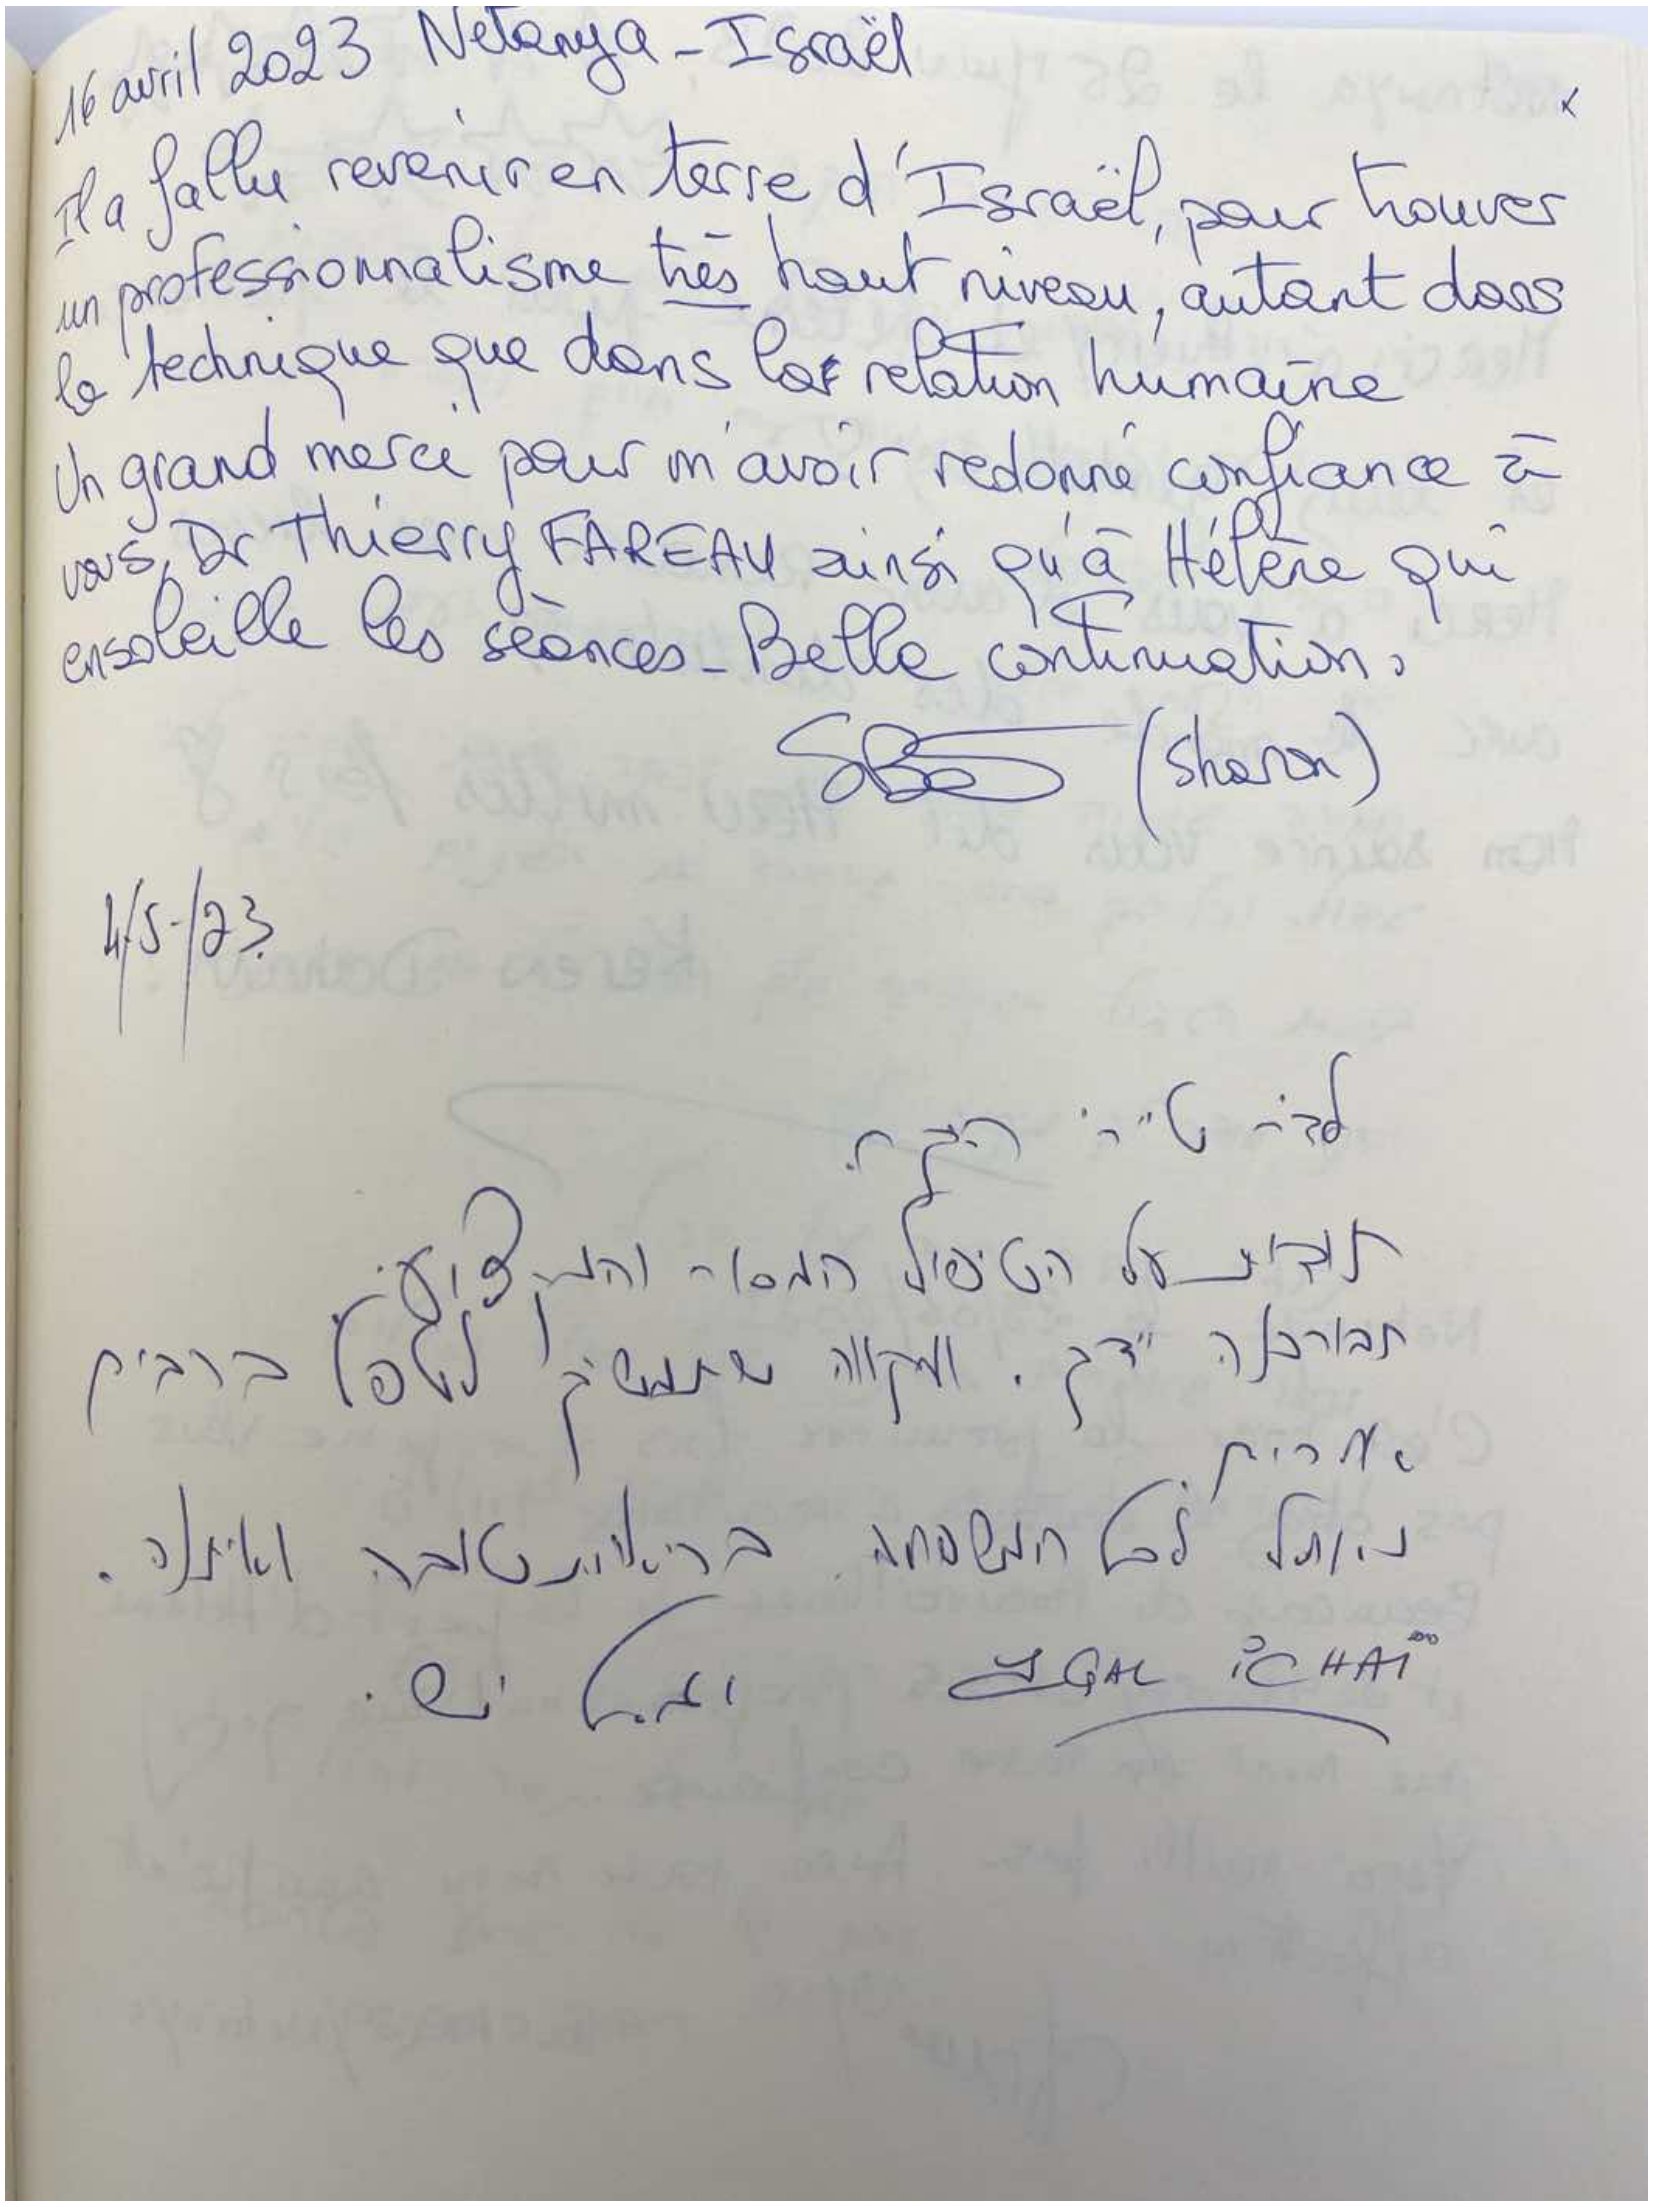 16 avril 2023 Netanya - Israël
Il a fallu revenir en terre d'Israël, pour trouver
un professionnalisme très haut niveau, autant dans
la technique que dans la relation humaine
Un grand merci pour m'avoir redonné confiance à
vous, Dr Thierry FAREAU ainsi qu'à Hélène qui
ensoleille les séances - Belle continuation.
(Sharon)
4/5/23
לדר' היקר.
תודות על הטיפול המסור והמקצועי.
תבורכנה ידך. ומקווה שתמשיך לטפל ברבים
אחרים.
לכל המשפחה בריאות טובה ואיתנה.
YGAL ICHAÏ
יגאל ישי.